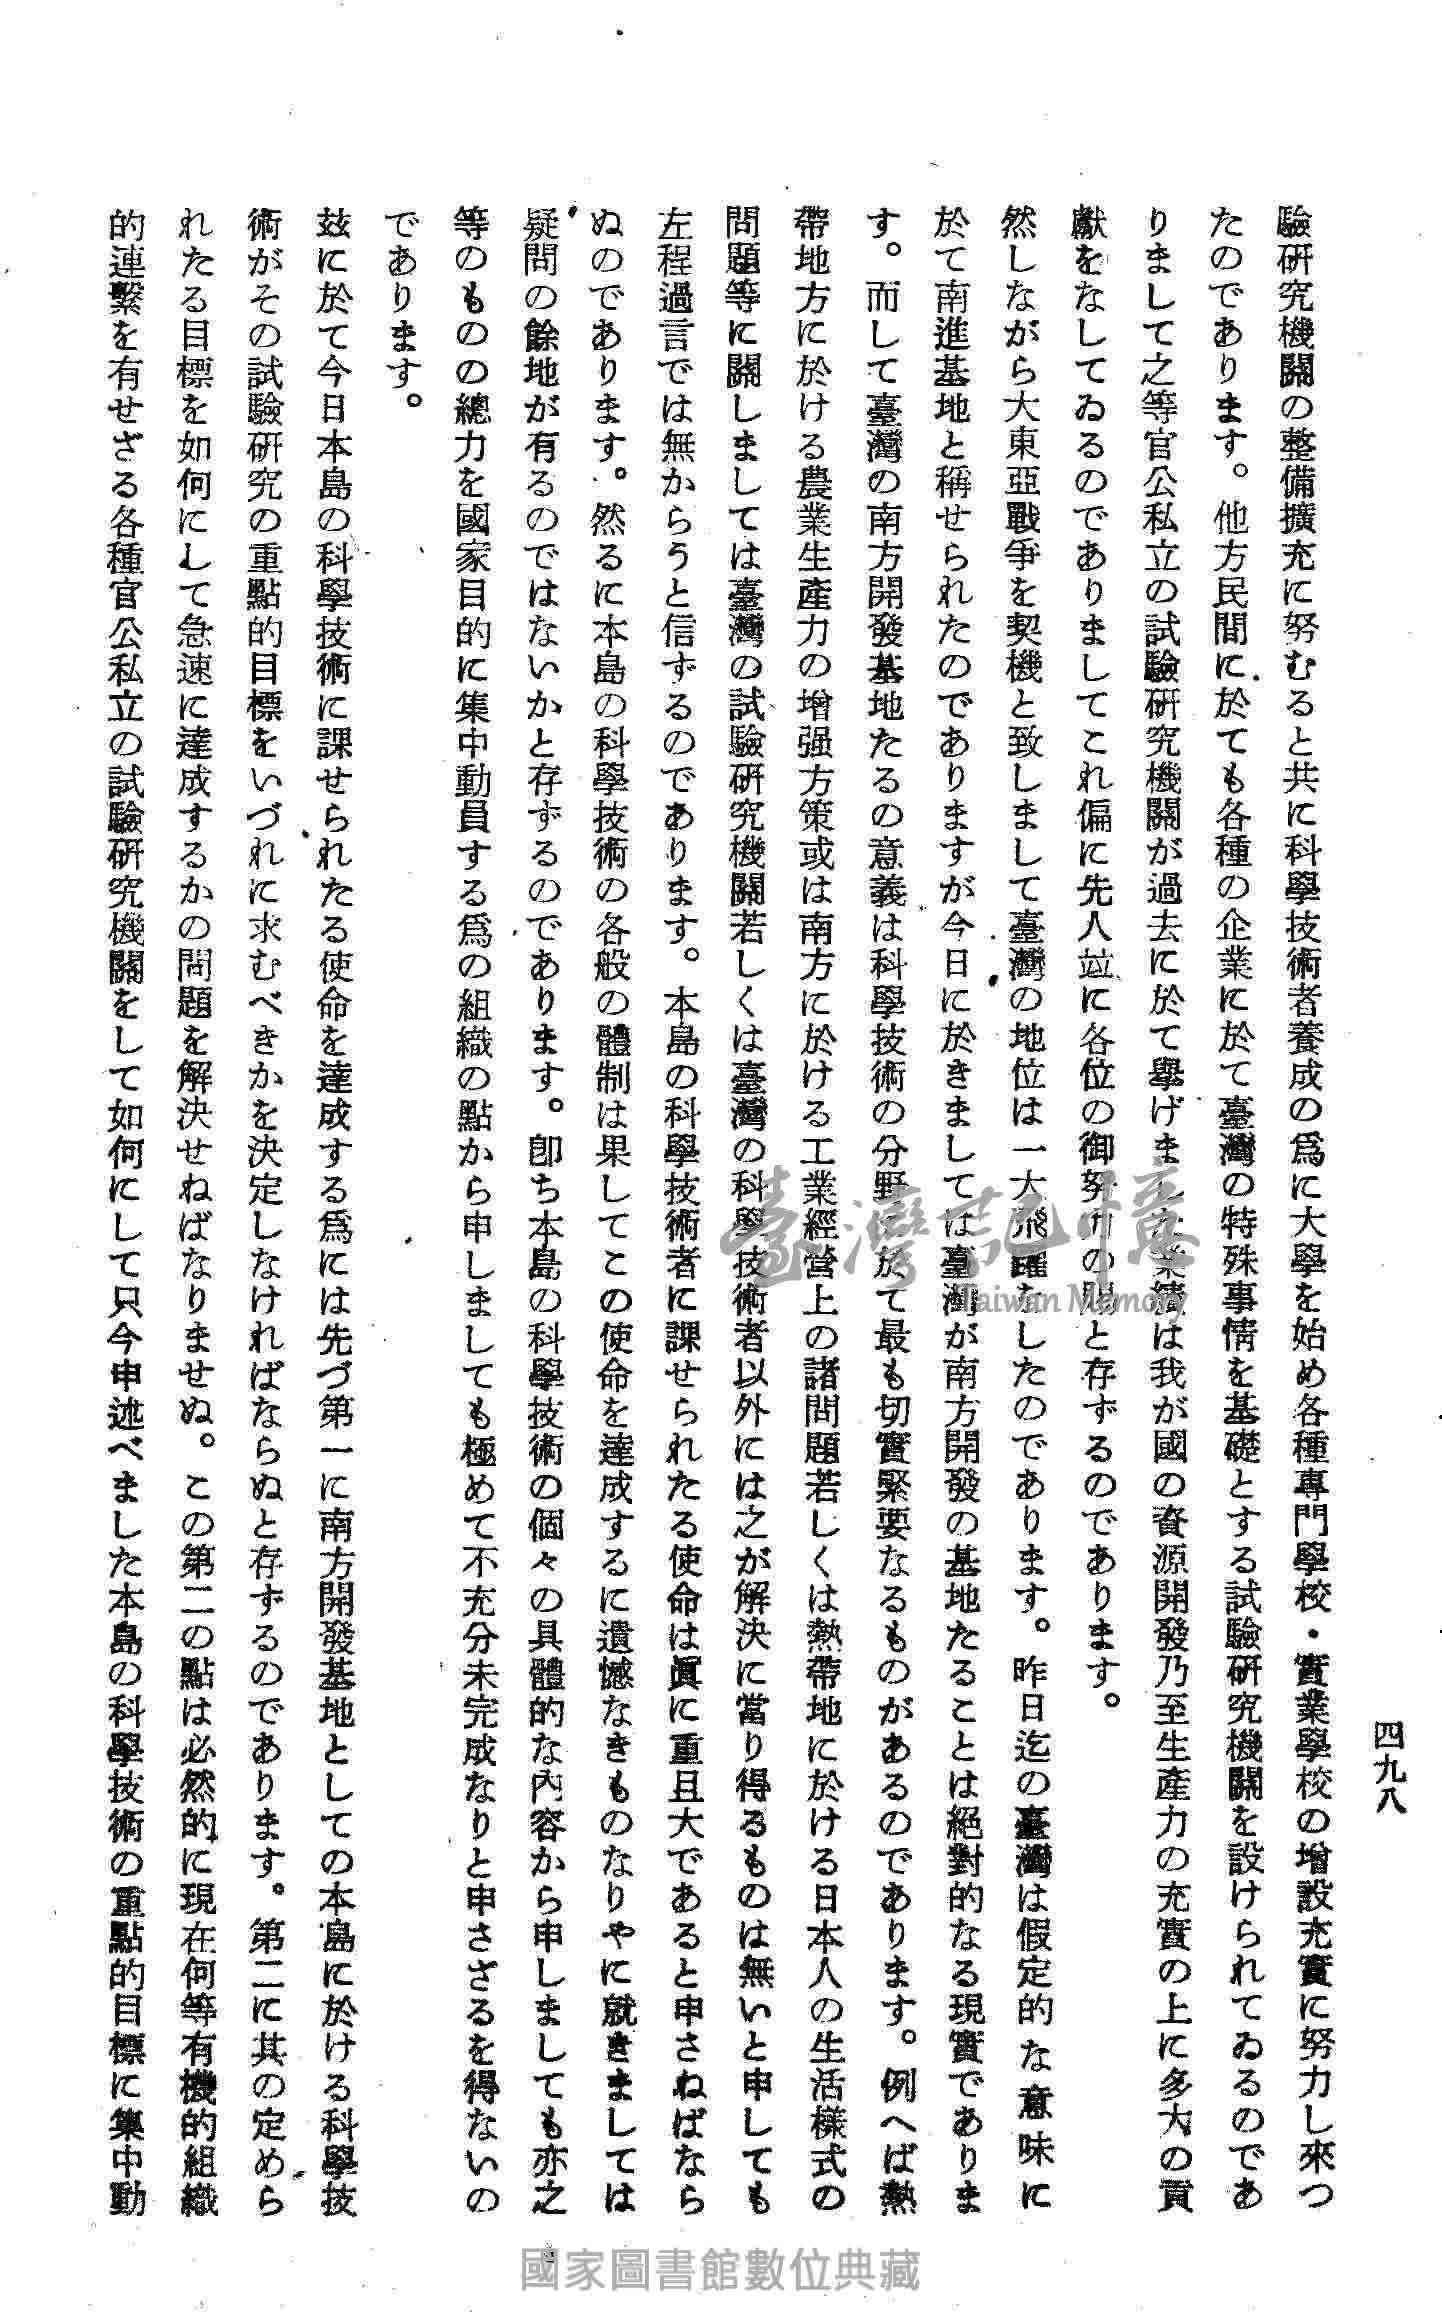 四九八
驗硏究機關の整備擴充に努むると共に科學技術者養成の爲に大學を始め各種專門學校・實業學校の增設充實に努力し來つ
たのであります。他方民間に於ても各種の企業に於て臺灣の特殊事情を基礎とする試驗硏究機關を設けられてゐるのであ
りまして之等官公私立の試驗硏究機關が過去に於て擧げました業績は我が國の資源開發乃至生產力の充實の上に多大の貢
獻をなしてゐるのでありましてこれ偏に先人竝に各位の御努力の賜と存ずるのであります。
然しながら大東亞戰爭を契機と致しまして臺灣の地位は一大飛躍をしたのであります。昨日迄の臺灣は假定的な意味に
於て南進基地と稱せられたのでありますが今日に於きましては臺灣が南方開發の基地たることは絕對的なる現實でありま
す。而して臺灣の南方開發基地たるの意義は科學技術の分野に於て最も切實緊要なるものがあるのであります。例へば熱
帶地方に於ける農業生產力の增强方策或は南方に於ける工業經營上の諸問題若しくは熱帶地に於ける日本人の生活樣式の
問題等に關しましては臺灣の試驗硏究機關若しくは臺灣の科學技術者以外には之が解決に當り得るものは無いと申しても
左程過言では無からうと信ずるのであります。本島の科學技術者に課せられたる使命は眞に重且大であると申さねばなら
ぬのであります。然るに本島の科學技術の各般の體制は果してこの使命を達成するに遺憾なきものなりやに就きましては
疑問の餘地が有るのではないかと存ずるのであります。卽ち本島の科學技術の個々の具體的な內容から申しましても亦之
等のものの總力を國家目的に集中動員する爲の組織の點から申しましても極めて不充分未完成なりと申さざるを得ないの
であります。
玆に於て今日本島の科學技術に課せられたる使命を達成する爲には先づ第一に南方開發基地としての本島に於ける科學技
術がその試驗硏究の重點的目標をいづれに求むべきかを決定しなければならぬと存ずるのであります。第二に其の定めら
れたる目標を如何にして急速に達成するかの問題を解決せねばなりませぬ。この第二の點は必然的に現在何等有機的組織
的連繫を有せざる各種官公私立の試驗硏究機關をして如何にして只今申述べました本島の科學技術の重點的目標に集中動
臺灣記憶
Taiwan Memory
國家圖書館數位典藏